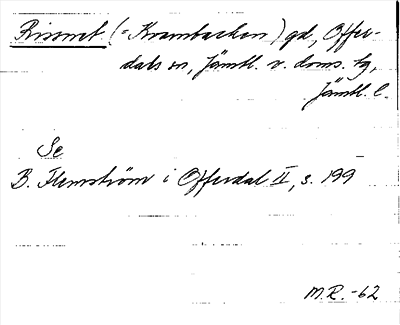 Rissnet (= Krambacken) gd, Offer-
dals sn, Jämtl. v. doms. tg,
Jämtl. l.
Se
B. Flemström i Offerdal II, s. 199
M.R. -62